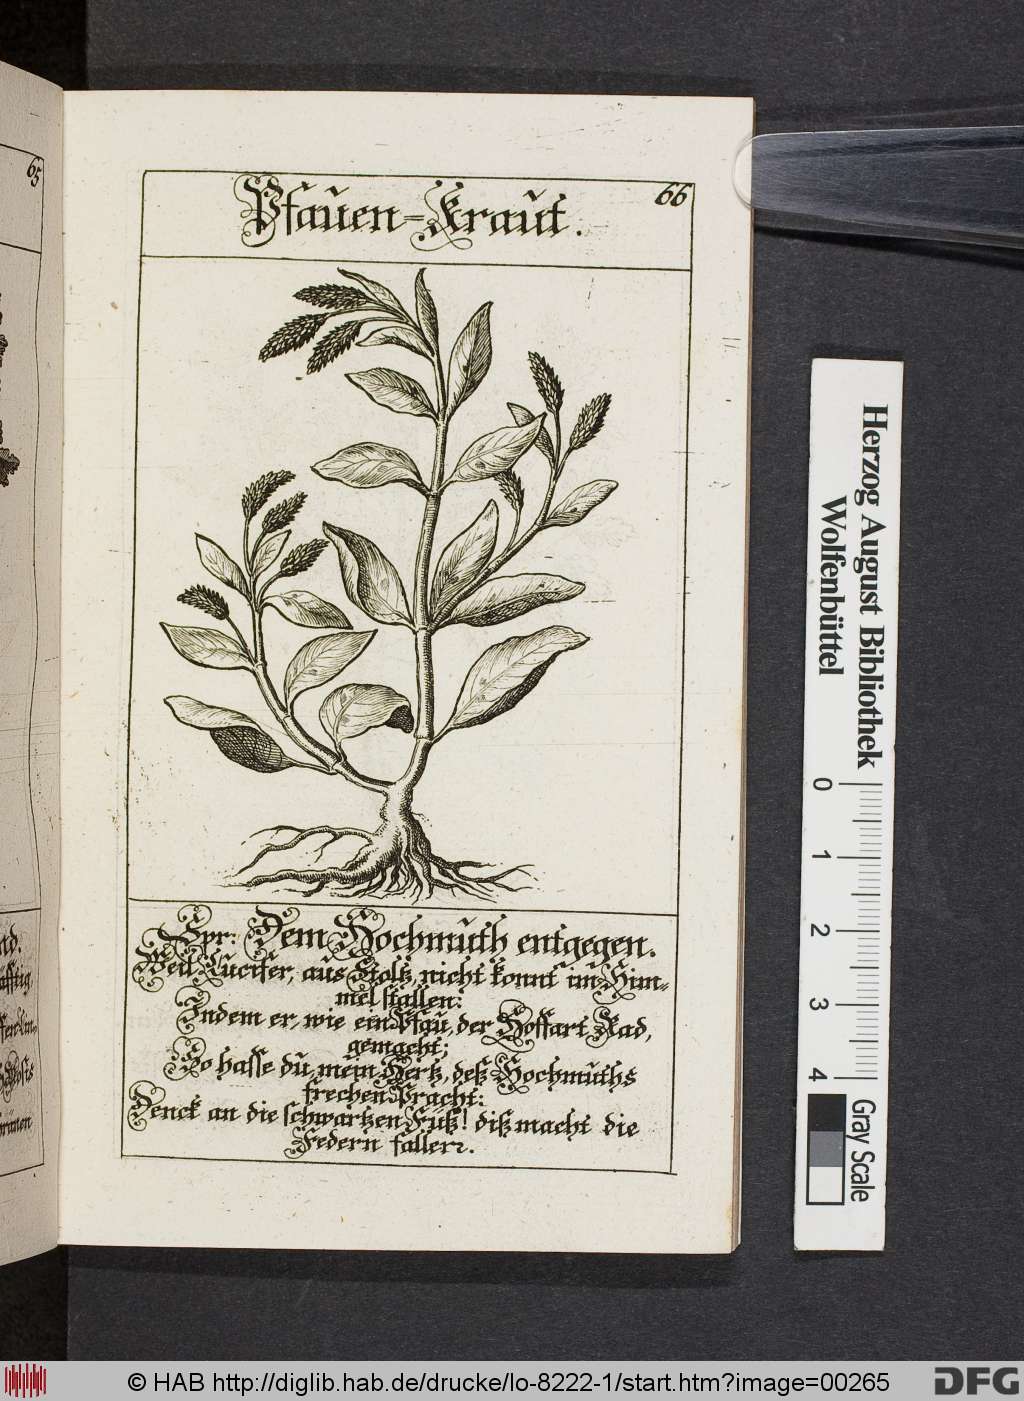 65
66
Pfauen-Kraut.
Spr: Dem Hochmuth entgegen.
Weil Lucifer, aus Stoltz, nicht konnt im Him-
mel stallen:
Indem er, wie ein Pfau, der Hoffart Rad,
gemacht;
So hasse du, mein Hertz, deß Hochmuths
frechen Pracht:
Denck an die schwartzen Füß! diß macht die
Federn fallen.
Herzog August Bibliothek
Wolfenbüttel
0 1 2 3 4
Gray Scale
© HAB http://diglib.hab.de/drucke/lo-8222-1/start.htm?image=00265
DFG